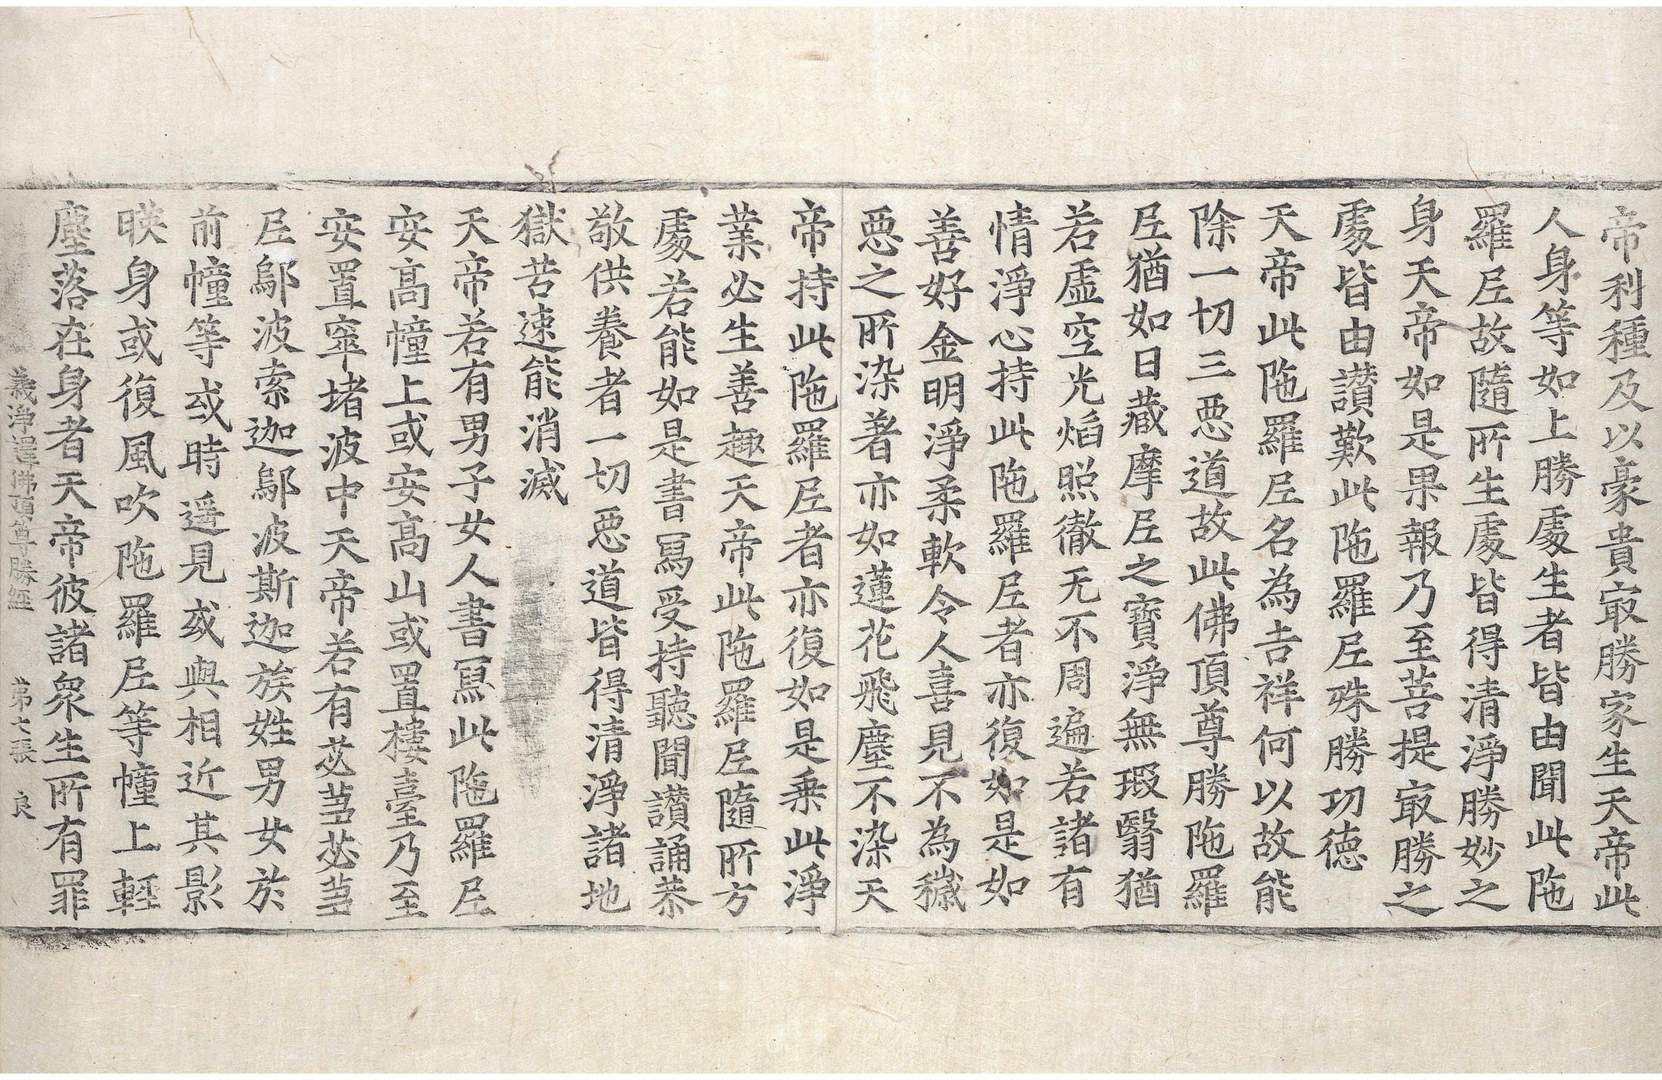 帝利種及以豪貴㝡勝家生天帝此
人身等如上勝處生者皆由聞此陁
羅尼故隨所生處皆得清淨勝妙之
身天帝如是果報乃至菩提㝡勝之
處皆由讚歎此陁羅尼殊勝功德
天帝此陁羅尼名為吉祥何以故能
除一切三惡道故此佛頂尊勝陁羅
尼猶如日藏摩尼之寶淨無瑕翳猶
若虛空光焰照徹无不周遍若諸有
情淨心持此陁羅尼者亦復如是如
善好金明淨柔軟令人喜見不為穢
惡之所染著亦如蓮花飛塵不染天
帝持此陁羅尼者亦復如是乗此淨
業必生善趣天帝此陁羅尼隨所方
處若能如是書寫受持聽聞讚誦恭
敬供養者一切惡道皆得清淨諸地
獄苦速能消滅
天帝若有男子女人書寫此陁羅尼
安高幢上或安高山或置樓臺乃至
安置窣堵波中天帝若有苾芻苾芻
尼鄔波索迦鄔波斯迦族姓男女於
前幢等或時遥見或與相近其影
暎身或復風吹陁羅尼等幢上輕
塵落在身者天帝彼諸衆生所有罪
義淨譯佛頂尊勝經 第七張 良